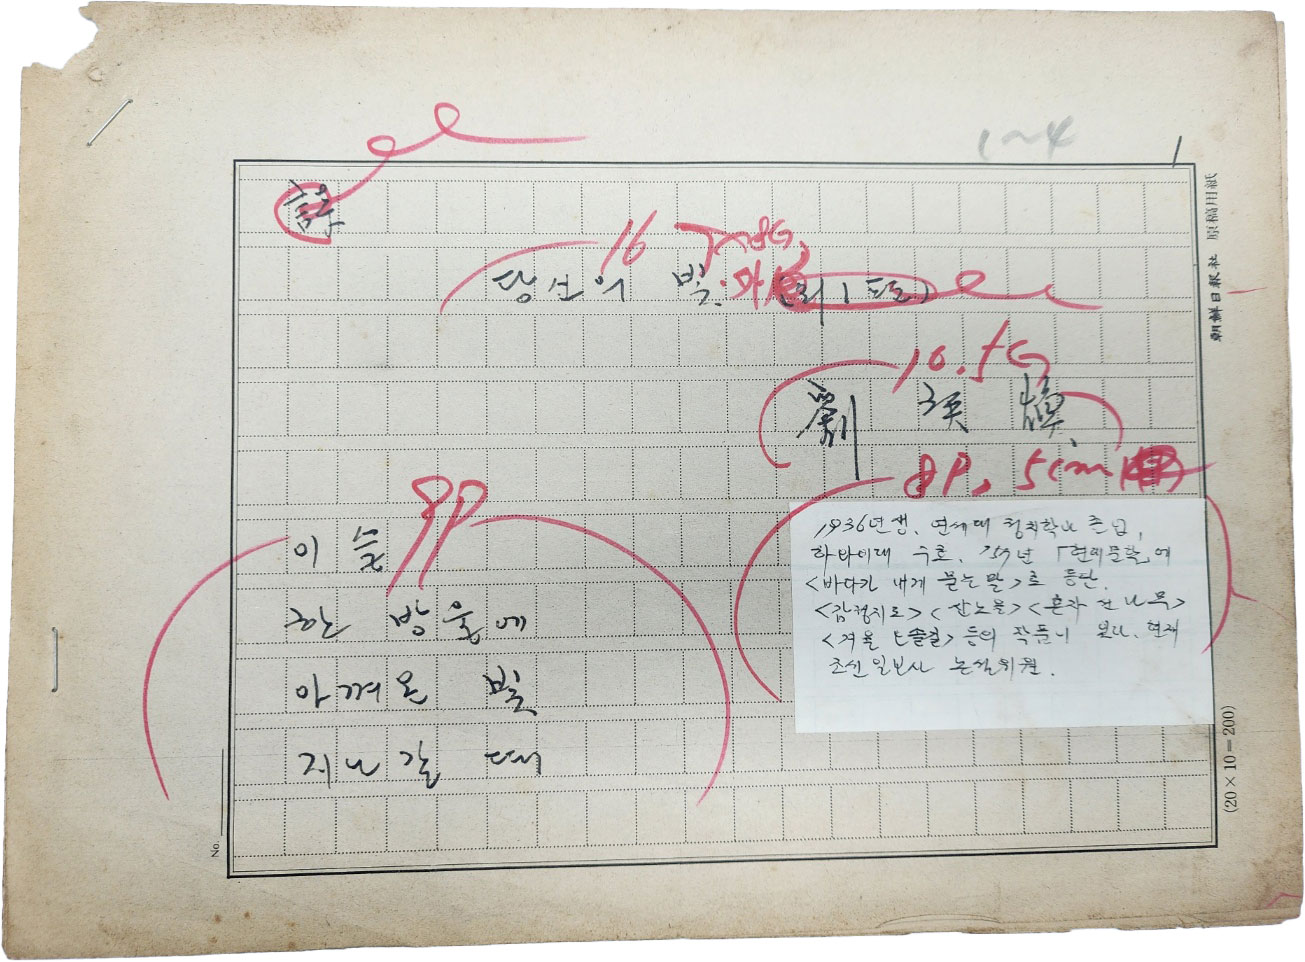 1~4
1
詩
16
당신의 빛 (외 1편)
10.5G
劉 庚 煥
8P, 5cm
8P
1936년생. 연세대 정치학과 졸업,
하바이대 수료. '57년 「현대문학」에
<바다가 내게 묻는 말>로 등단.
<감정지도> <산노을> <혼자 선 나무>
<겨울 오솔길> 등의 작품이 있다. 현재
조선일보사 논설위원.
이슬
한 방울에
아껴온 빛
지나갈 때
朝鮮日報社 原稿用紙
(20×10=200)
No.